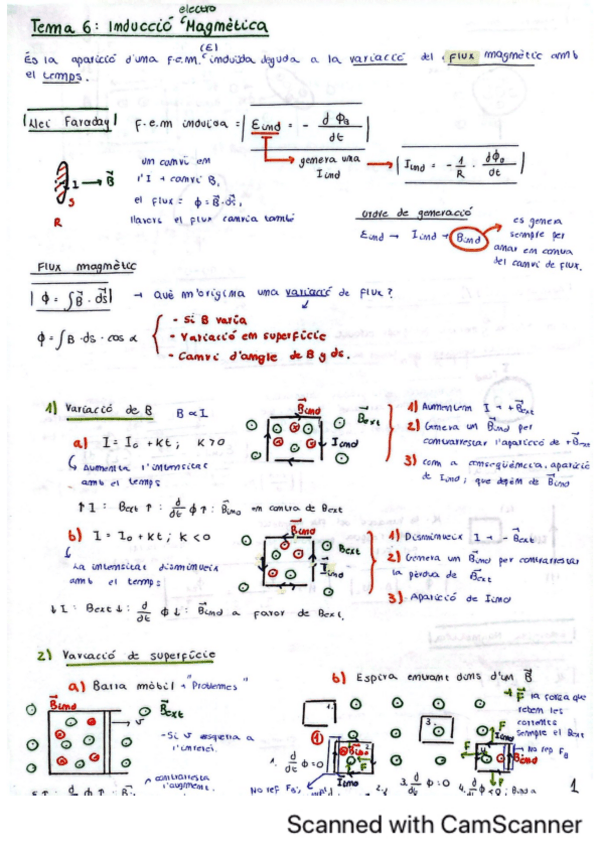 Tema 6: Inducció electro Magnètica
És la aparició d'una f.e.m. (E) induida deguda a la variació del flux magnètic amb
el temps.
Llei Faraday
F.e.m induïda = Eind = - dΦB / dt
genera una Iind
Iind = - 1/R · dΦB / dt
un canvi en
l'I → canvi B,
el flux = Φ=B·dS,
llavors el flux canvia també
I → B
S
R
Ordre de generació
Eind → Iind → Bind
es genera
sempre per
anar en contra
del canvi de flux.
Flux magnètic
Φ = ∫B · dS → què m'origina una variació de flux?
Φ = ∫B · ds · cos α
- Si B varia
- Variació en superfície
- Canvi d'angle de B y ds.
1) Variació de B B ∝ I
a) I = I0 + kt ; k > 0
↳ Augmenta l'intensitat
amb el temps
↑ I : Bext ↑ : d/dt Φ ↑ : Bind en contra de Bext
Bind
Bext
Iind
1) Augmentem I → +Bext
2) Genera un Bind per
contrarrestar l'aparició de +Bext
3) com a conseqüència, aparició
de Iind, que depèn de Bind
b) I = I0 + kt ; k < 0
La intensitat disminueix
amb el temps
↓ I : Bext ↓ : d/dt Φ ↓ : Bind a favor de Bext.
Bind
Bext
Iind
1) Disminueix I → - Bext
2) Genera un Bind per contrarrestar
la pèrdua de Bext
3) Aparició de Iind
2) Variació de superfície
a) Barra mòbil → "Problemes"
Bind
Bext
v
- Si v esquerra a
contrarresta
l'augment.
b) Espira entrant dins d'un B
F la força que
reben les
corrents
sempre el Bext
1.
2.
3.
4.
Bind
F
Iind
No rep FB
1. d/dt Φ=0
3. d/dt Φ=0
1
Scanned with CamScanner